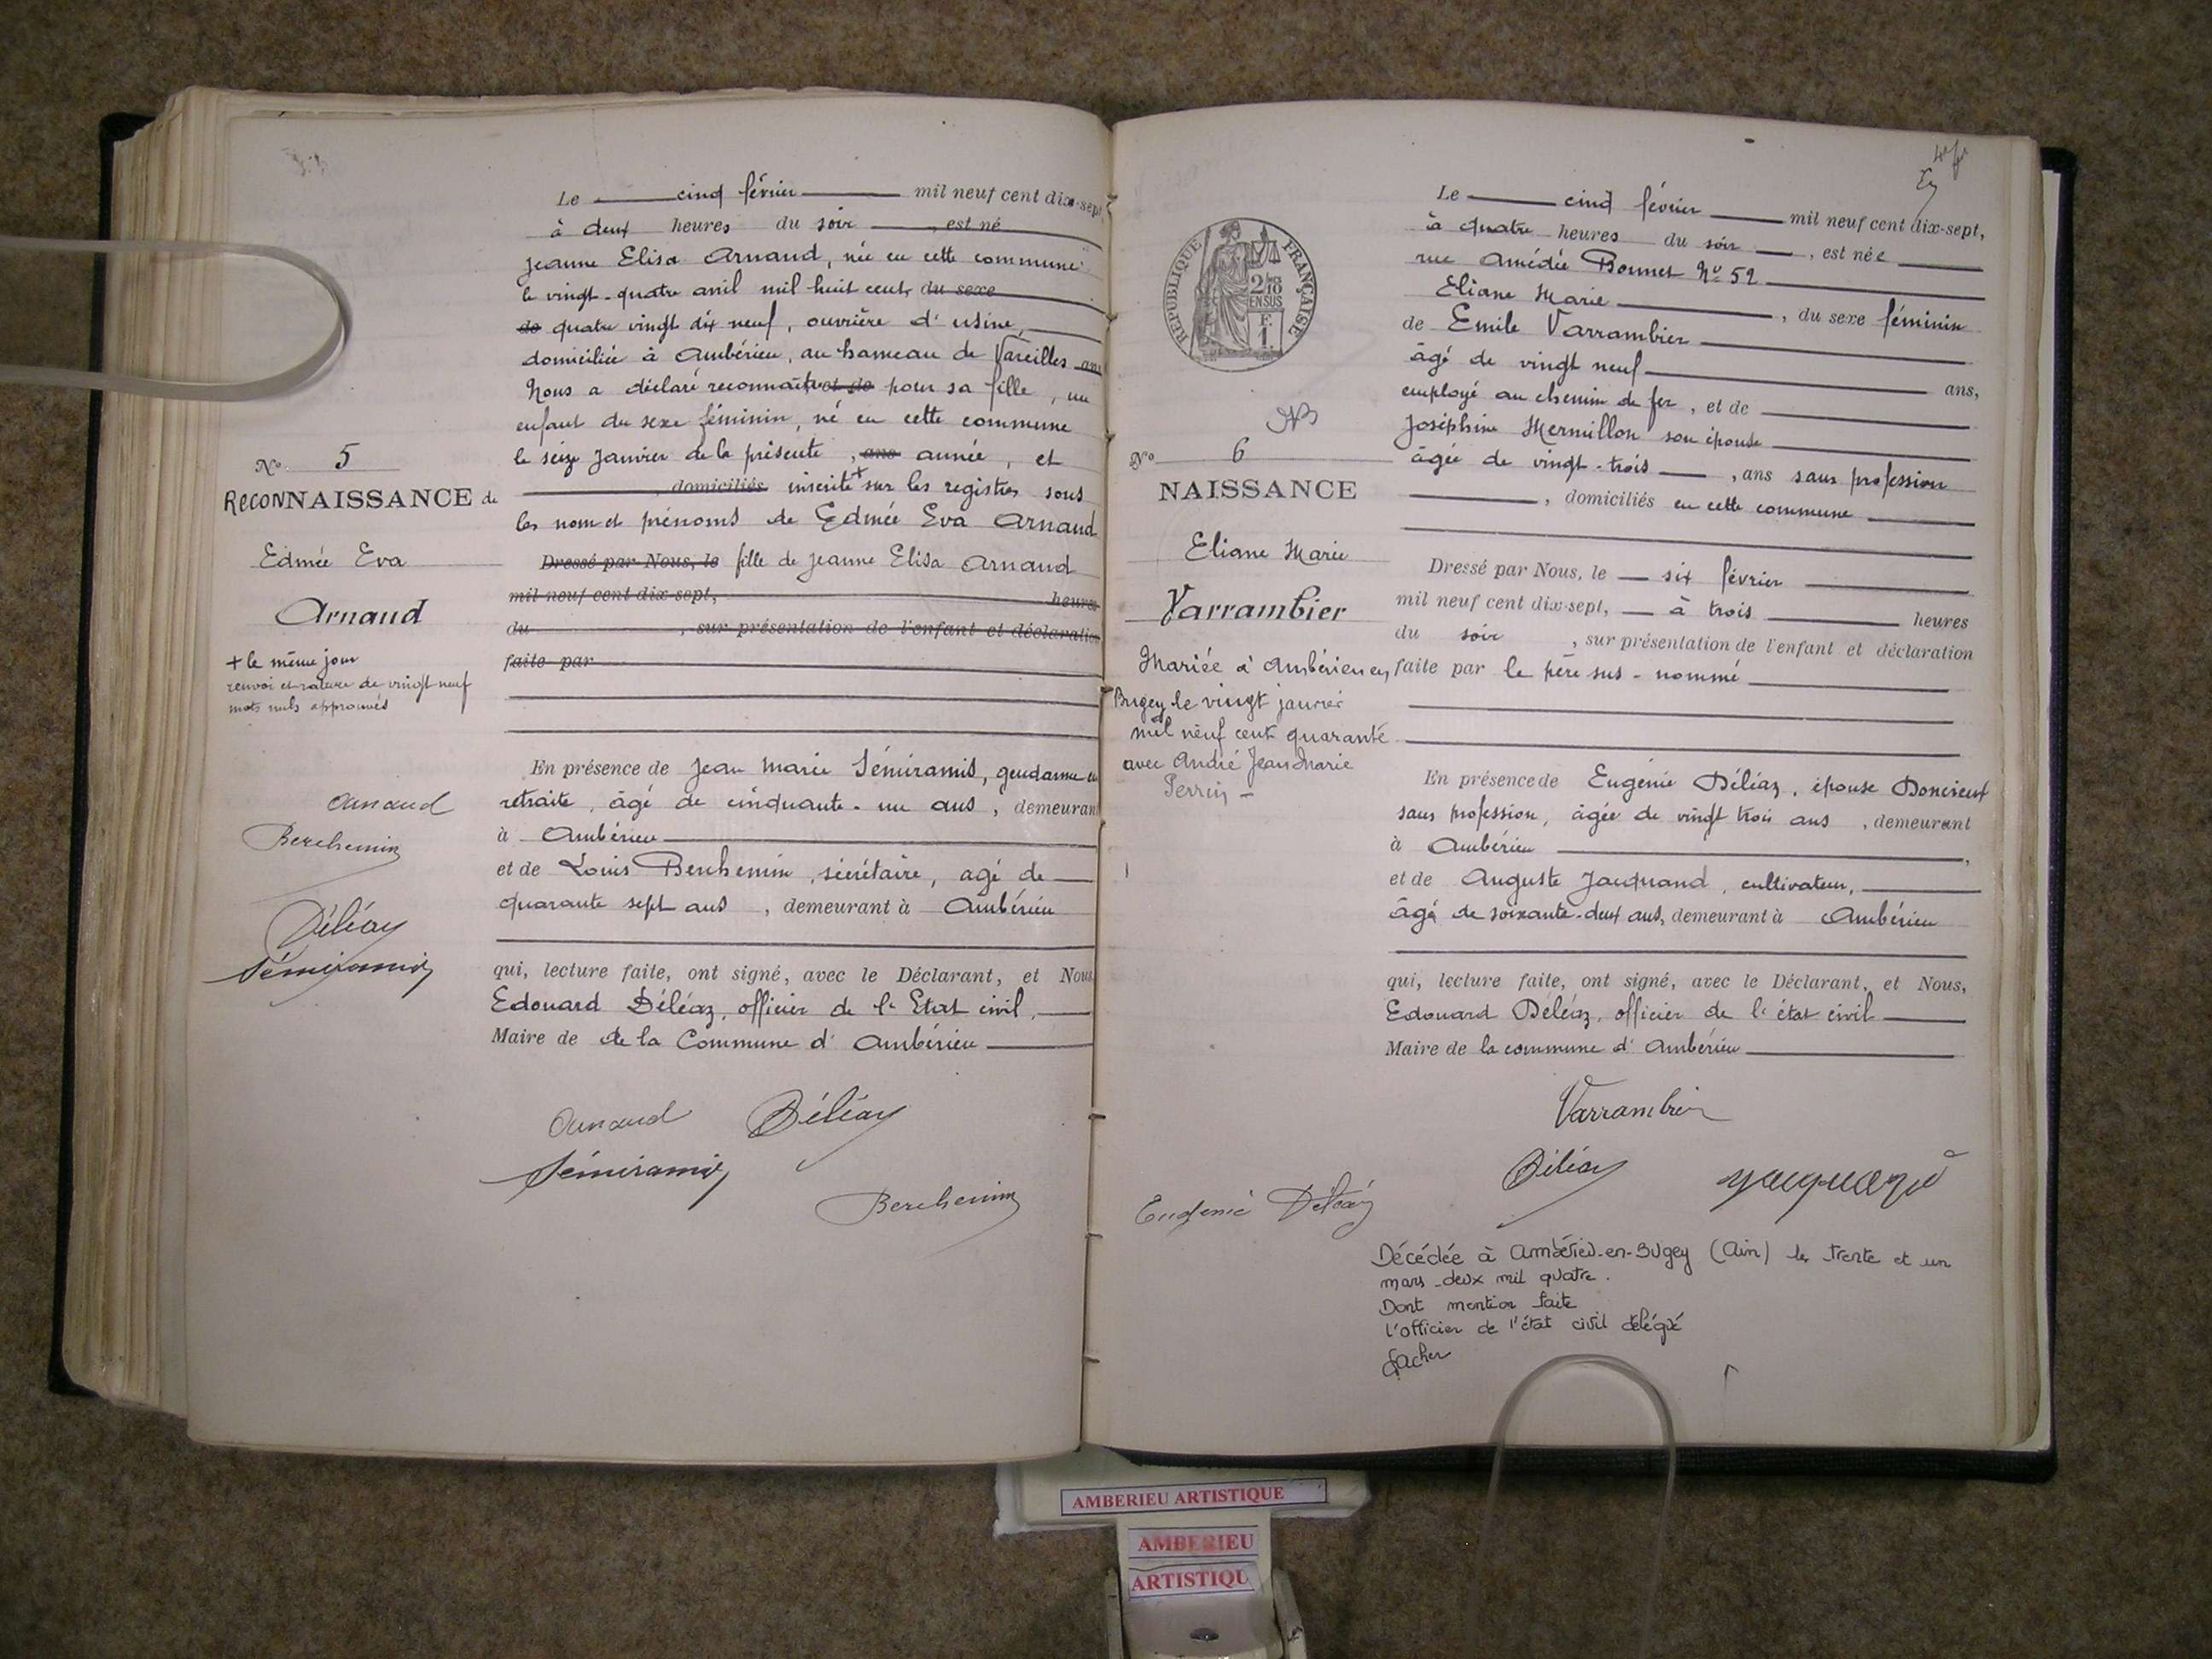 Le cinq février mil neuf cent dix-sept
à deux heures du soir, est né
Jeanne Elisa Arnaud, née en cette commune
le vingt-quatre avril mil huit cent, du sexe
de quatre vingt dix neuf, ouvrière d'usine,
domiciliée à Ambérieu, au hameau de Vareilles ans
Nous a déclaré reconnaître et de pour sa fille, un
enfant du sexe féminin, né en cette commune
le seize Janvier de la présente, ans année, et
, domiciliés inscrite + sur les registres sous
les nom et prénoms de Edmée Eva Arnaud
Dressé par Nous, le fille de Jeanne Elisa Arnaud
mil neuf cent dix-sept, heures
du , sur présentation de l'enfant et déclaration
faite par
En présence de Jean Marie Sémiramis, gendarme en
retraite, âgé de cinquante-un ans, demeurant
à Ambérieu
et de Louis Berchemin, secrétaire, agé de
quarante sept ans, demeurant à Ambérieu
qui, lecture faite, ont signé, avec le Déclarant, et Nous
Edouard Déléaz, officier de l'Etat civil,
Maire de de la Commune d'Ambérieu
Arnaud Déléaz
Sémiramis
Berchemin
No 5
RECONNAISSANCE de
Edmée Eva
Arnaud
+ le même jour
renvoi et rature de vingt neuf
mots nuls approuvés
Arnaud
Berchemin
Déléaz
Sémiramis
Le cinq février mil neuf cent dix-sept,
à quatre heures du soir, est née
rue Amédée Bonnet No 52
Eliane Marie, du sexe féminin
de Emile Varrambier
âgé de vingt neuf ans,
employé au chemin de fer, et de
Joséphine Mermillon son épouse
âgée de vingt-trois, ans sans profession
, domiciliés en cette commune
Dressé par Nous, le six février
mil neuf cent dix-sept, à trois heures
du soir, sur présentation de l'enfant et déclaration
faite par le père sus-nommé
En présence de Eugénie Déléaz, épouse Doncieux
sans profession, âgée de vingt trois ans, demeurant
à Ambérieu,
et de Auguste Jacquand, cultivateur,
âgé de soixante-deux ans, demeurant à Ambérieu
qui, lecture faite, ont signé, avec le Déclarant, et Nous,
Edouard Déléaz, officier de l'état civil
Maire de la commune d'Ambérieu
Varrambier
Déléaz Jacquand
Eugénie Déléaz
Décédée à Ambérieu-en-Bugey (Ain) le trente et un
mars deux mil quatre.
Dont mention faite
l'officier de l'état civil délégué
REPUBLIQUE FRANÇAISE
2/10
EN SUS
F.
1.
No 6
NAISSANCE
Eliane Marie
Varrambier
Mariée à Ambérieu en
Bugey le vingt janvier
mil neuf cent quarante
avec André Jean Marie
Perrin -
AMBERIEU ARTISTIQUE
AMBERIEU
ARTISTIQU